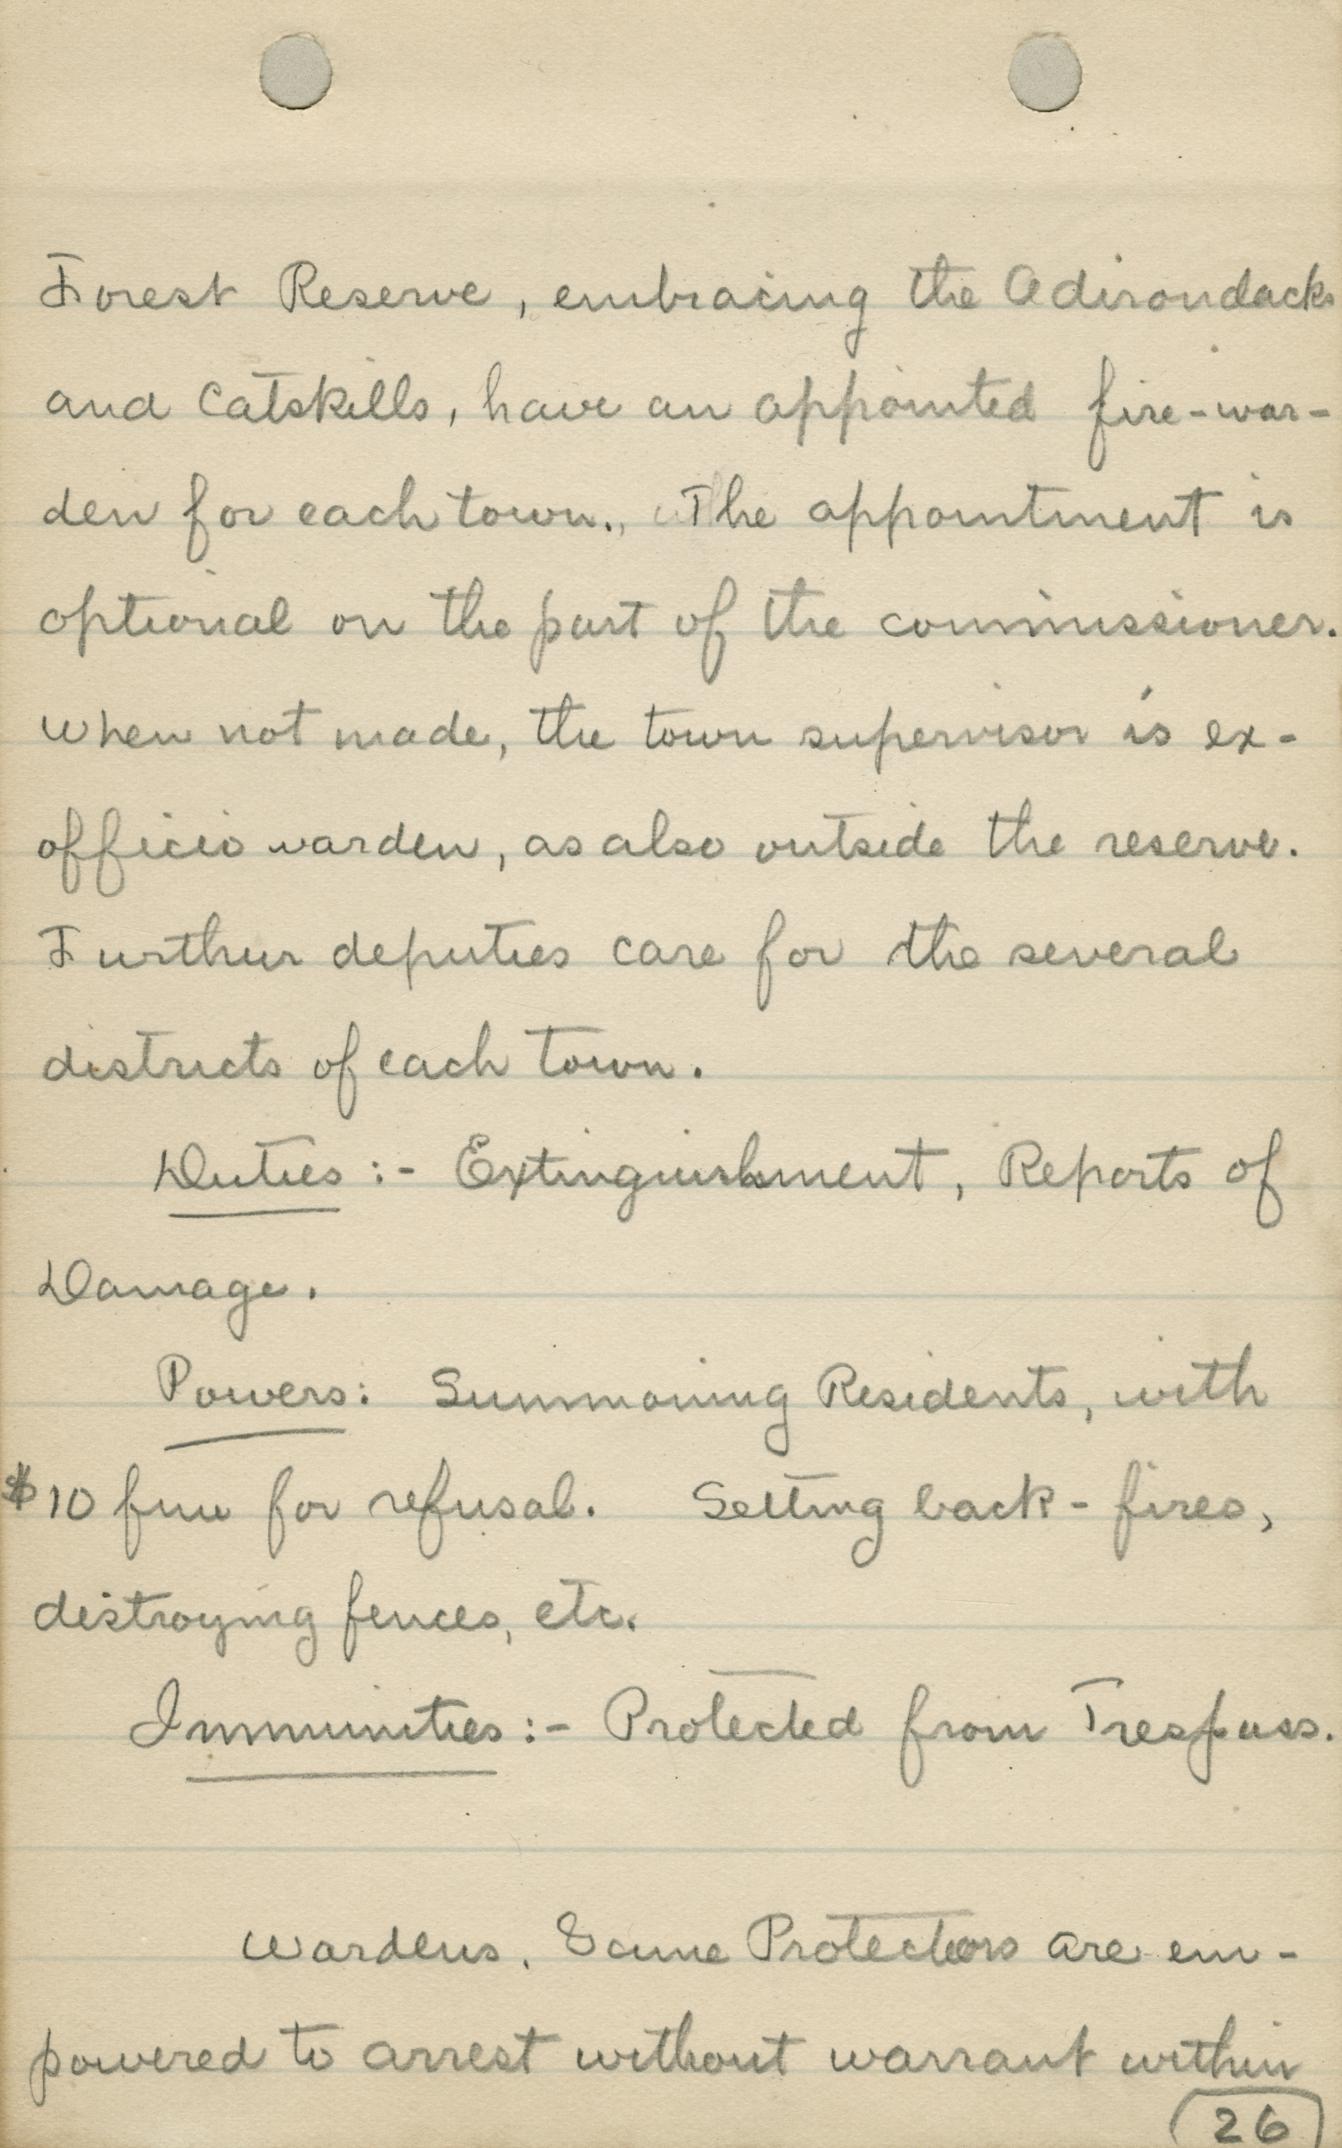 Forest Reserve, embracing the Adirondacks
and Catskills, have an appointed fire-war-
den for each town., The appointment is
optional on the part of the commissioner.
When not made, the town supervisor is ex-
officio warden, as also outside the reserve.
Furthur deputies care for the several
districts of each town.
Duties :- Extinguishment, Reports of
Damage.
Powers: Summoning Residents, with
$10 fine for refusal. Setting back-fires,
distroying fences, etc.
Immunities :- Protected from Trespass.
Wardens. Game Protectors are em-
powered to arrest without warrant within
26